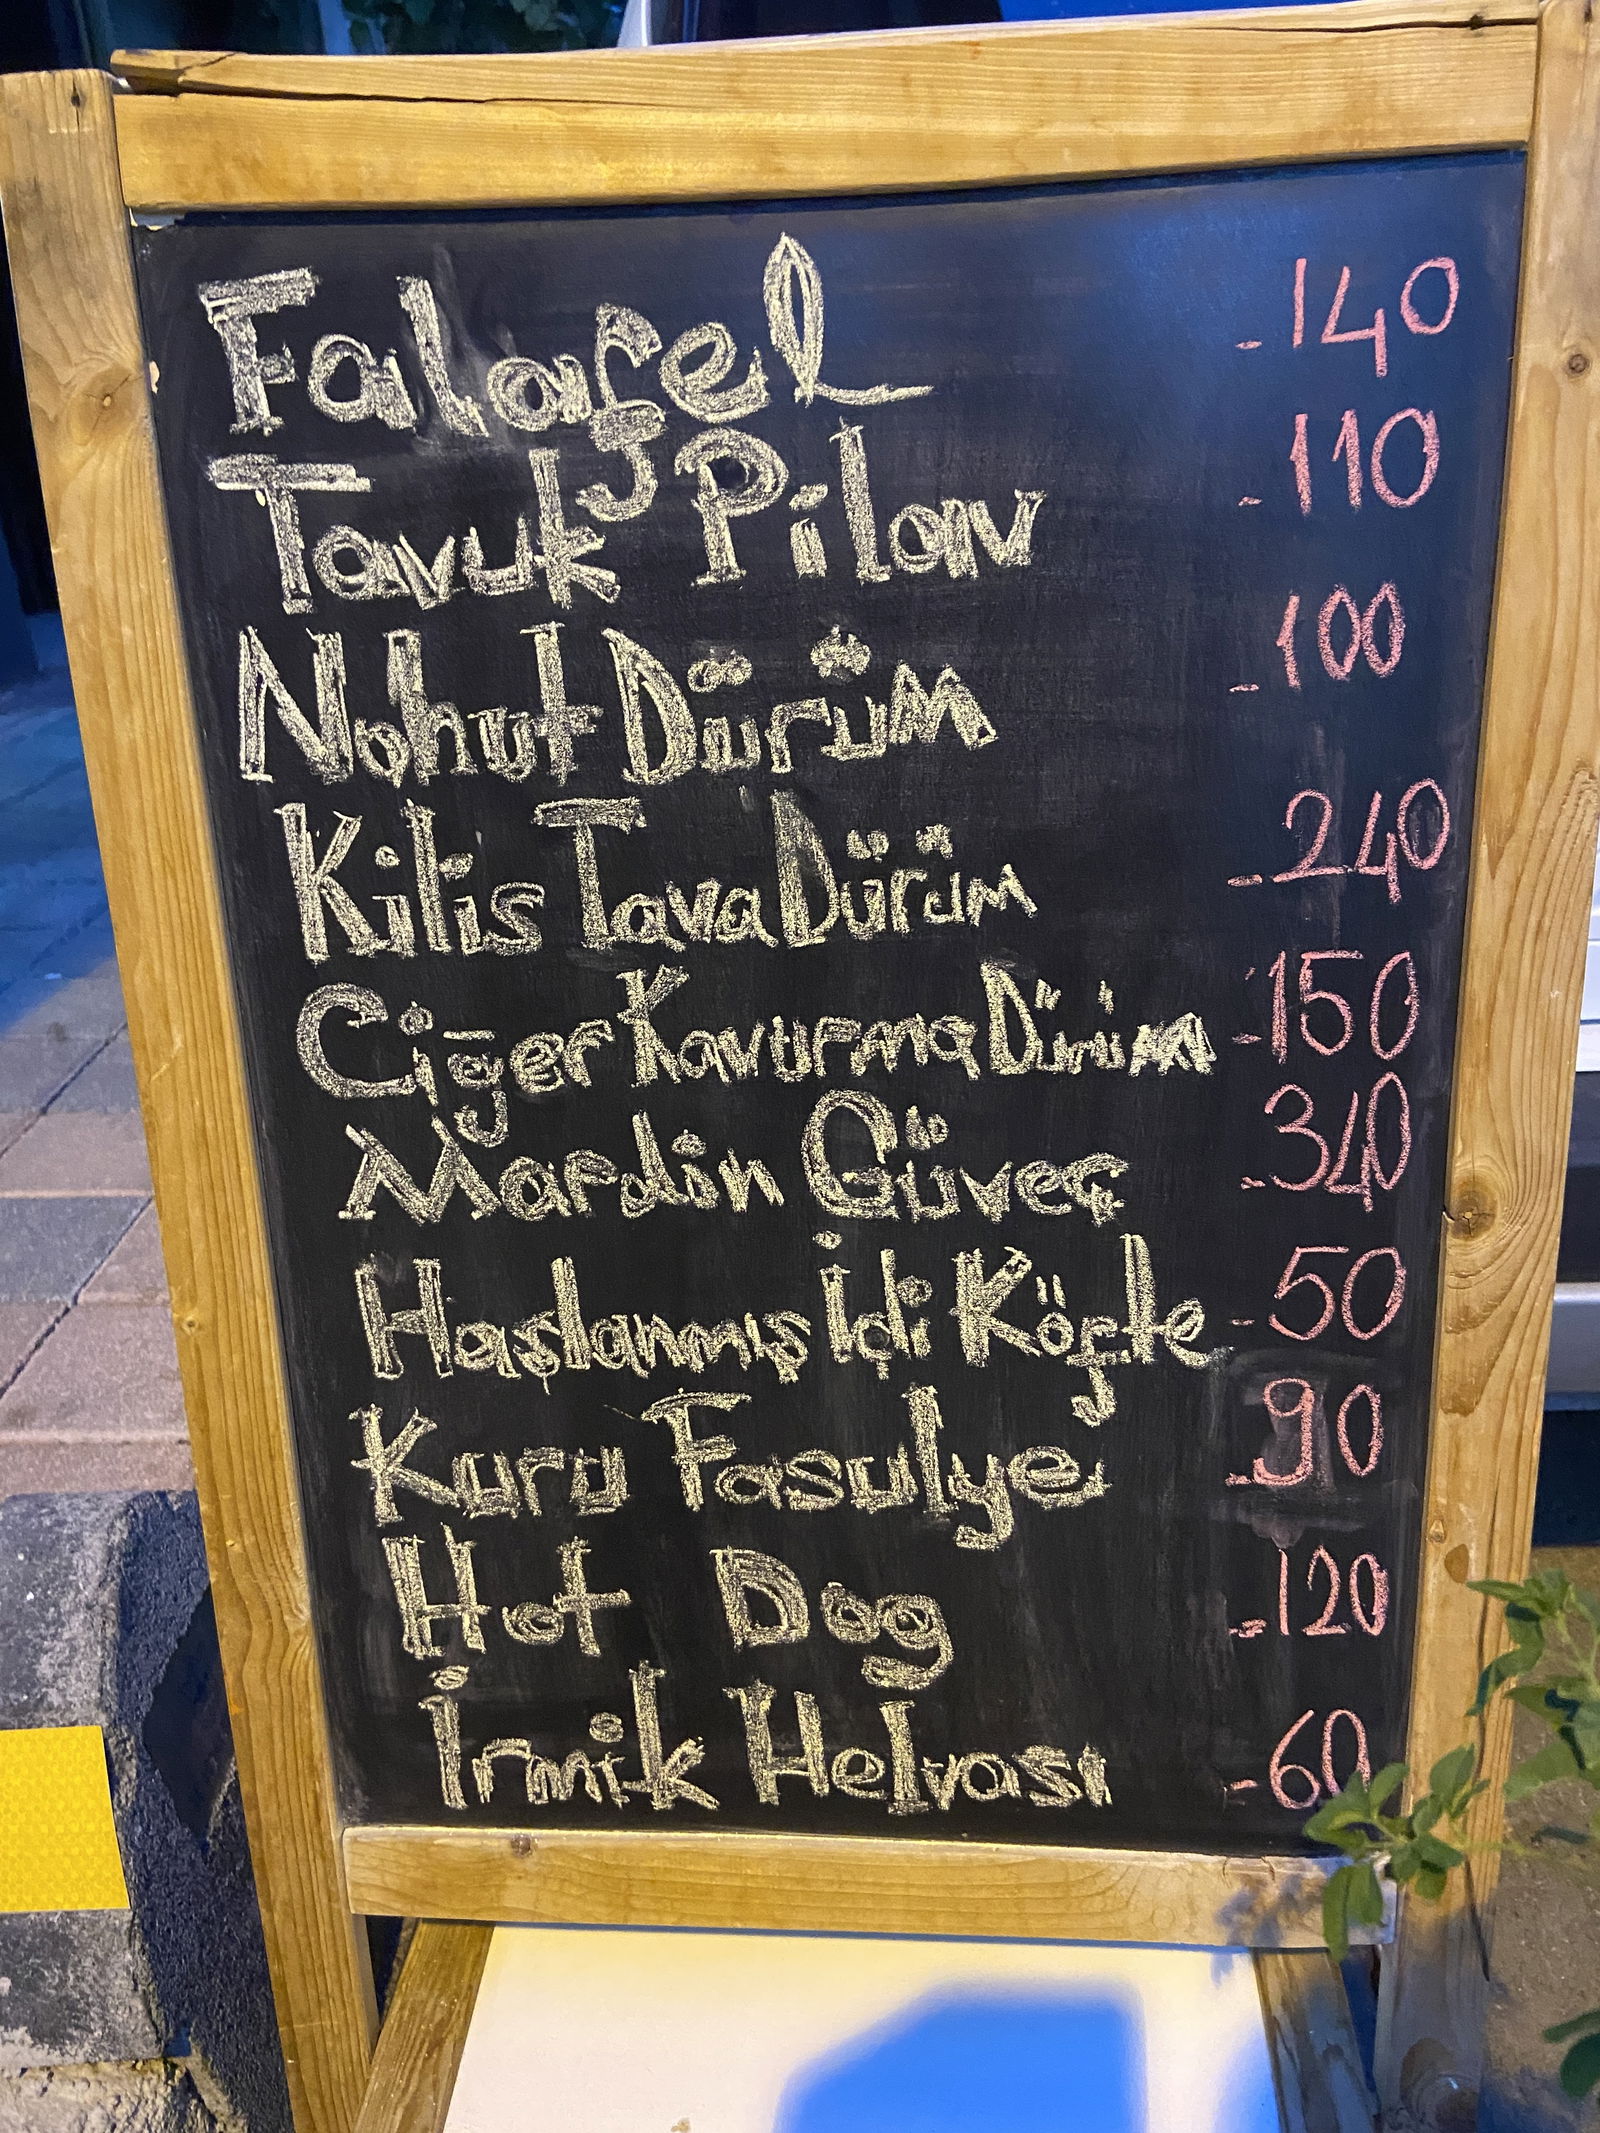 Falafel -140
Tavuk Pilav -110
Nohut Dürüm -100
Kilis Tava Dürüm -240
Ciğer Kavurma Dürüm -150
Mardin Güveç -340
Haşlanmış İçli Köfte -50
Kuru Fasulye -90
Hot Dog -120
İrmik Helvası -60